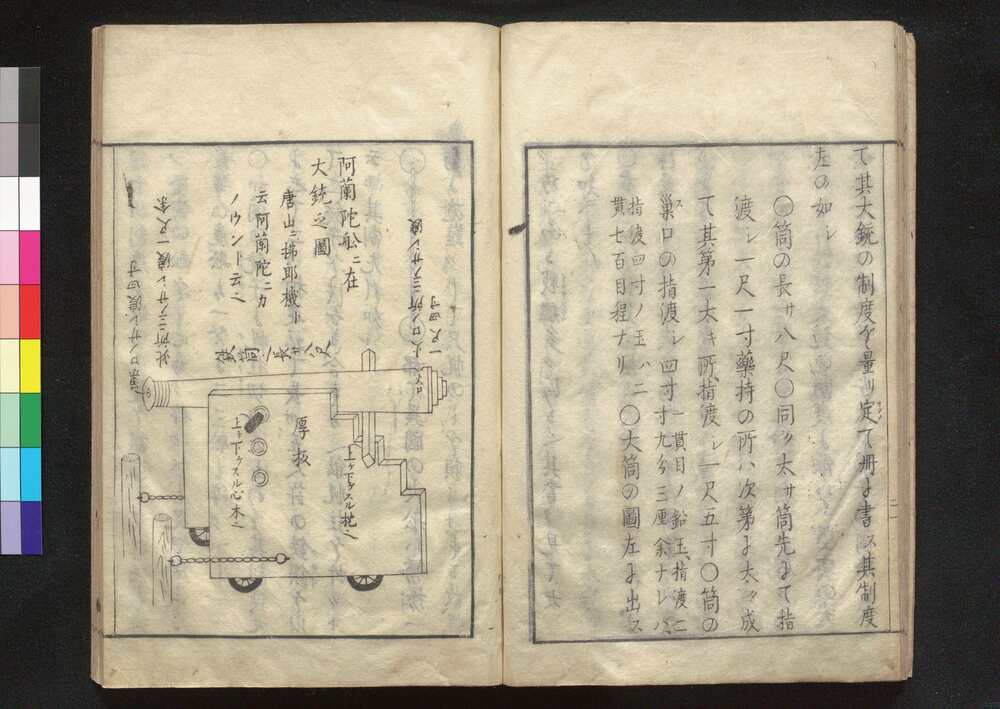 て其大銃の制度を量リ定て冊よ書ス其制度
左の如し
〇筒の長サ八尺〇同ク太サ筒先よて指
渡シ一尺一寸藥持の所ハ次第よ太ク成
て其第一太キ所、指渡シ一尺五寸〇筒の
巣口の指渡シ四寸九分三厘余ナレハ、
一貫目ノ鉛玉、指渡二
指渡四寸ノ玉ハ二
貫七百目程ナリ
〇大筒の圖左よ出ス
阿蘭陀舩ニ在
大銃之圖
唐山ニ拂郎機ト
云阿蘭陀ニカ
ノウント云之
火口ノ所ニテサシ渡
一尺四寸
鉄筒ノ長
此所ニテサシ渡一尺余
厚板
上ケ下ケスル枕之
上ケ下ケスル心木之